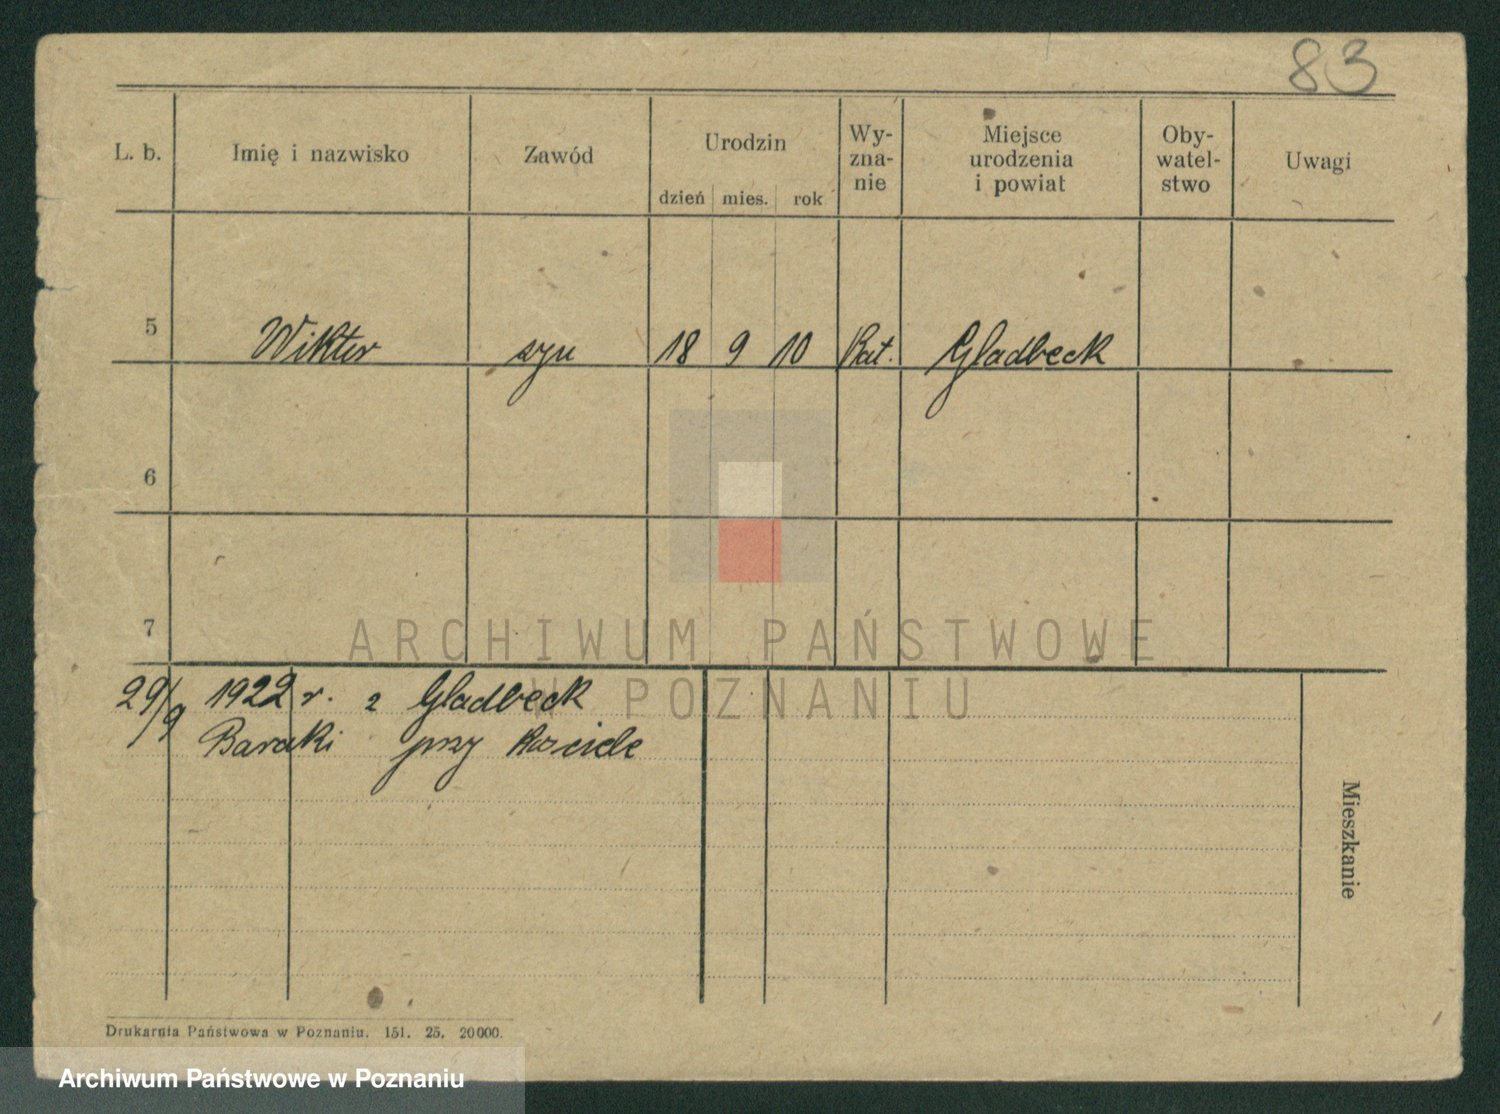 83
L. b.
Imię i nazwisko
Zawód
Urodzin
dzień mies. rok
Wy-
zna-
nie
Miejsce
urodzenia
i powiat
Oby-
watel-
stwo
Uwagi
5 Wiktor syn 18 9 10 Kat. Gladbeck
6
7
ARCHIWUM PAŃSTWOWE
W POZNANIU
29/9 1922 r. z Gladbeck
Baraki przy Kościele
Mieszkanie
Drukarnia Państwowa w Poznaniu. 151. 25. 20000.
Archiwum Państwowe w Poznaniu